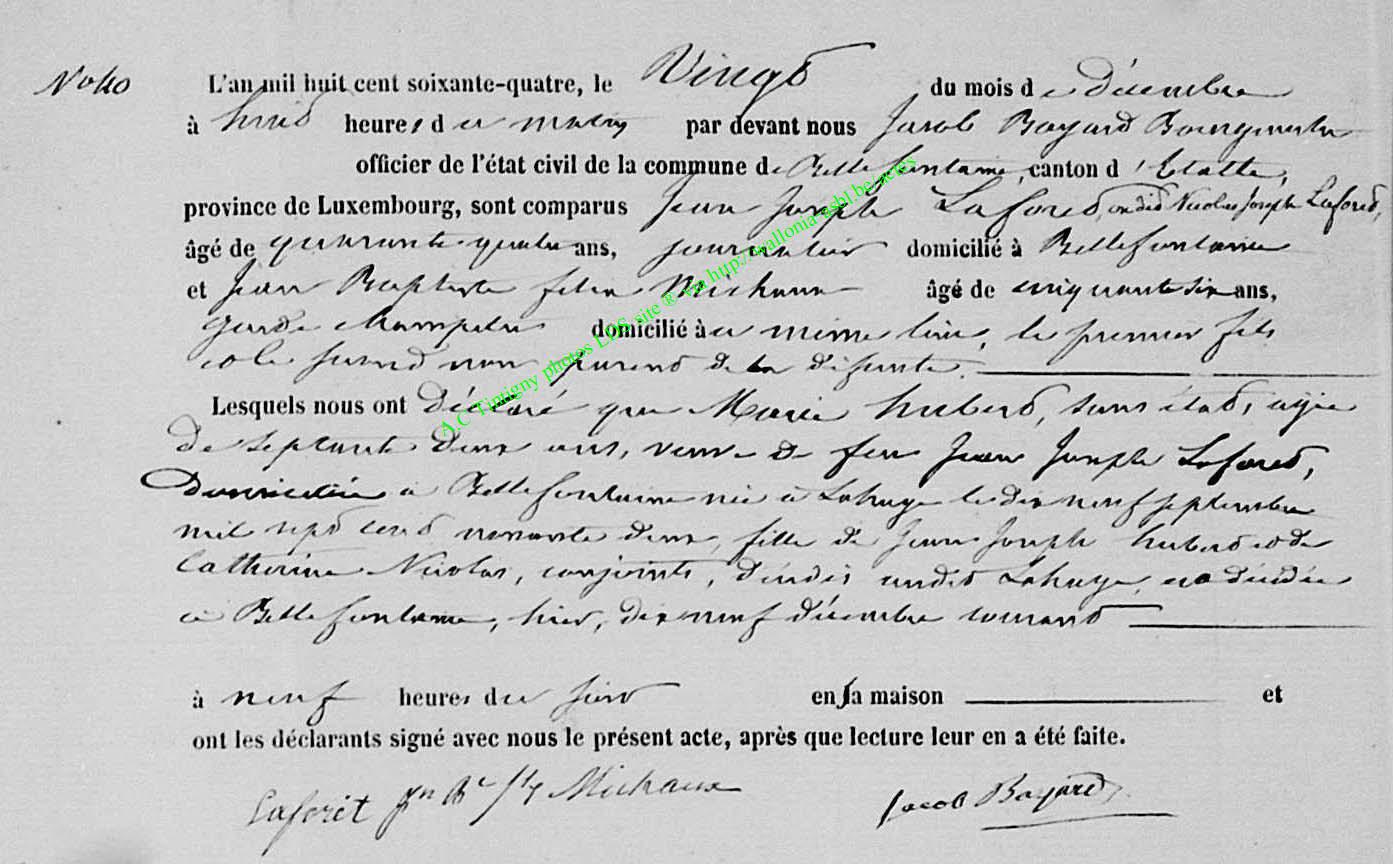 No 40 L'an mil huit cent soixante-quatre, le Vingt du mois de décembre
à huit heures du matin par devant nous Jacob Bayard Bourgmestre
officier de l'état civil de la commune de Bellefontaine, canton d'Etalle,
province de Luxembourg, sont comparus Jean Joseph Laforet, ou dit Nicolas Joseph Laforet,
âgé de quarante quatre ans, journalier domicilié à Bellefontaine
et Jean Baptiste felix Michaux âgé de cinquante six ans,
garde champetre domicilié à ce même lieu, le premier fils
et le second non parent de la défunte.
Lesquels nous ont déclaré que Marie hubert, sans état, agée
de septante deux ans, veuve de feu Jean Joseph Laforet,
Domiciliée à Bellefontaine née à Lahage le dix neuf septembre
mil sept cent nonante deux, fille de Jean Joseph hubert et de
Catherine Nicolas, conjoints, décédés audit Lahage, est décédée
à Bellefontaine, hier, dix neuf décembre courant
à neuf heures du soir en sa maison et
ont les déclarants signé avec nous le présent acte, après que lecture leur en a été faite.
Laforêt Jn Bte Michaux Jacob Bayard
A.C Tintigny photos LDS site ® via http://wallonia-asbl.be/actes